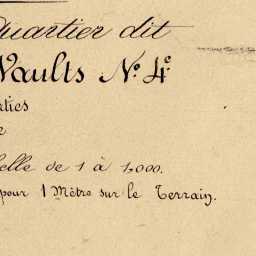 Quartier dit
Vaults N.° 4.e
rties
e
elle de 1 à 1,000.
pour 1 Mètre sur le Terrain.